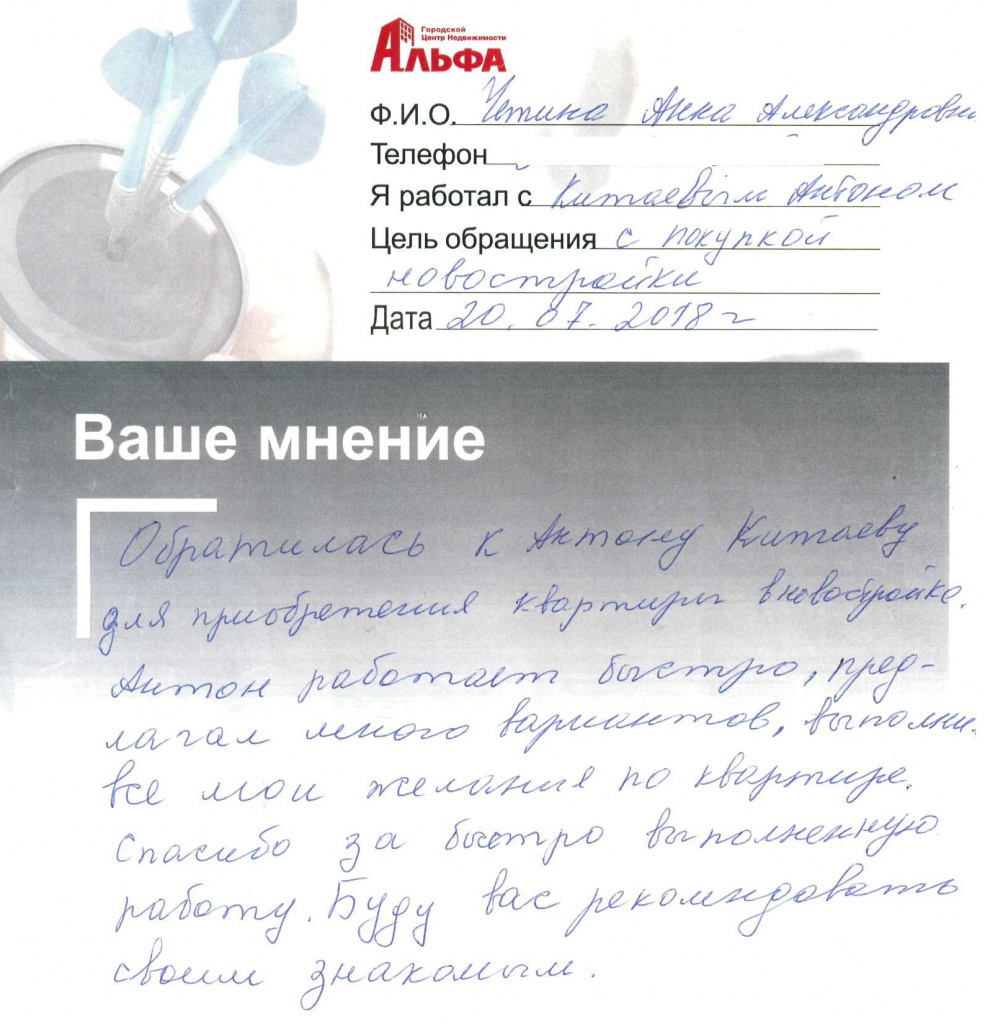 Городской
Центр Недвижимости
АЛЬФА
Ф.И.О. Анна Александровн
Телефон
Я работал с Китаевым Антоном
Цель обращения с покупкой
новостройки
Дата 20.07.2018 г
Ваше мнение
Обратилась к Антону Китаеву
для приобретения квартиры в новостройке.
Антон работает быстро, пред-
лагал много вариантов, выполни
все мои желания по квартире.
Спасибо за быстро выполненную
работу. Буду вас рекомендовать
своим знакомым.